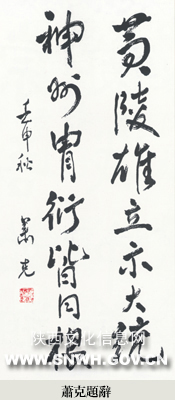 黄陵雄立示大統
神州胄衍皆同根
壬申秋
萧克
陕西文化信息网
WWW.SNWH.GOV.CN
蕭克題辭